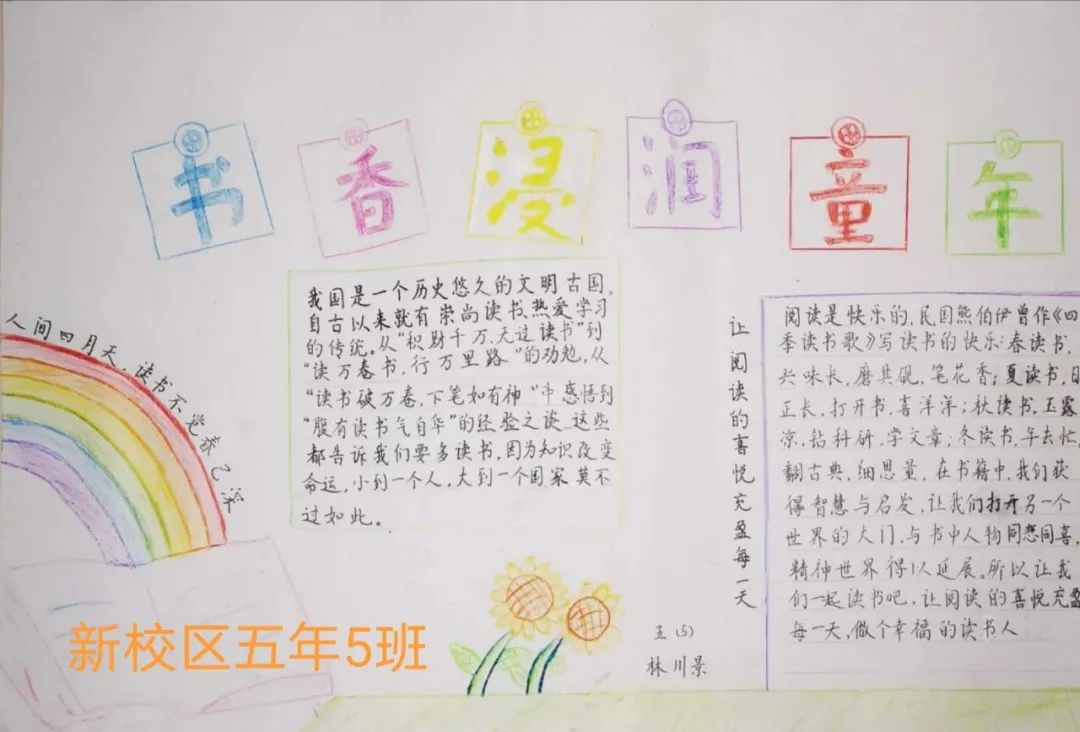 书香浸润童年
人间四月天，读书不觉春已深
我国是一个历史悠久的文明古国。
自古以来就有崇尚读书、热爱学习
的传统。从“积财千万、无过读书”到
“读万卷书，行万里路”的功勉，从
“读书破万卷，下笔如有神”中感悟到
“腹有读书气自华”的经验之谈…这些
都告诉我们要多读书，因为知识改变
命运，小到一个人，大到一个国家莫不
过如此。
让阅读的喜悦充盈每一天
阅读是快乐的，民国熊伯伊曾作《四
季读书歌》写读书的快乐：春读书，
兴味长，磨其砚，笔花香；夏读书，日
正长，打开书，喜洋洋；秋读书，玉露
凉，钻科研，学文章；冬读书，年去忙，
翻古典，细思量，在书籍中，我们获
得智慧与启发，让我们打开另一个
世界的大门，与书中人物同悲同喜，
精神世界得以延展。所以让我
们一起读书吧，让阅读的喜悦充盈
每一天，做个幸福的读书人
五(5)
林川景
新校区五年5班